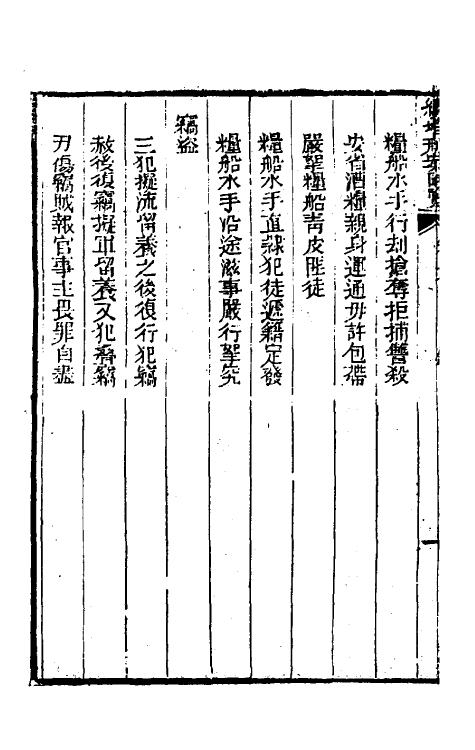 糧船水手行刦搶奪拒捕讐殺
安省漕糧親身運通毋許包帶
嚴拏糧船青皮匪徒
糧船水手直隸犯徒遞籍定發
糧船水手沿途滋事嚴行拏究
竊盜
三犯擬流留養之後復行犯竊
赦後復竊擬軍留養又犯行竊
刃傷竊賊報官事主畏罪自盡